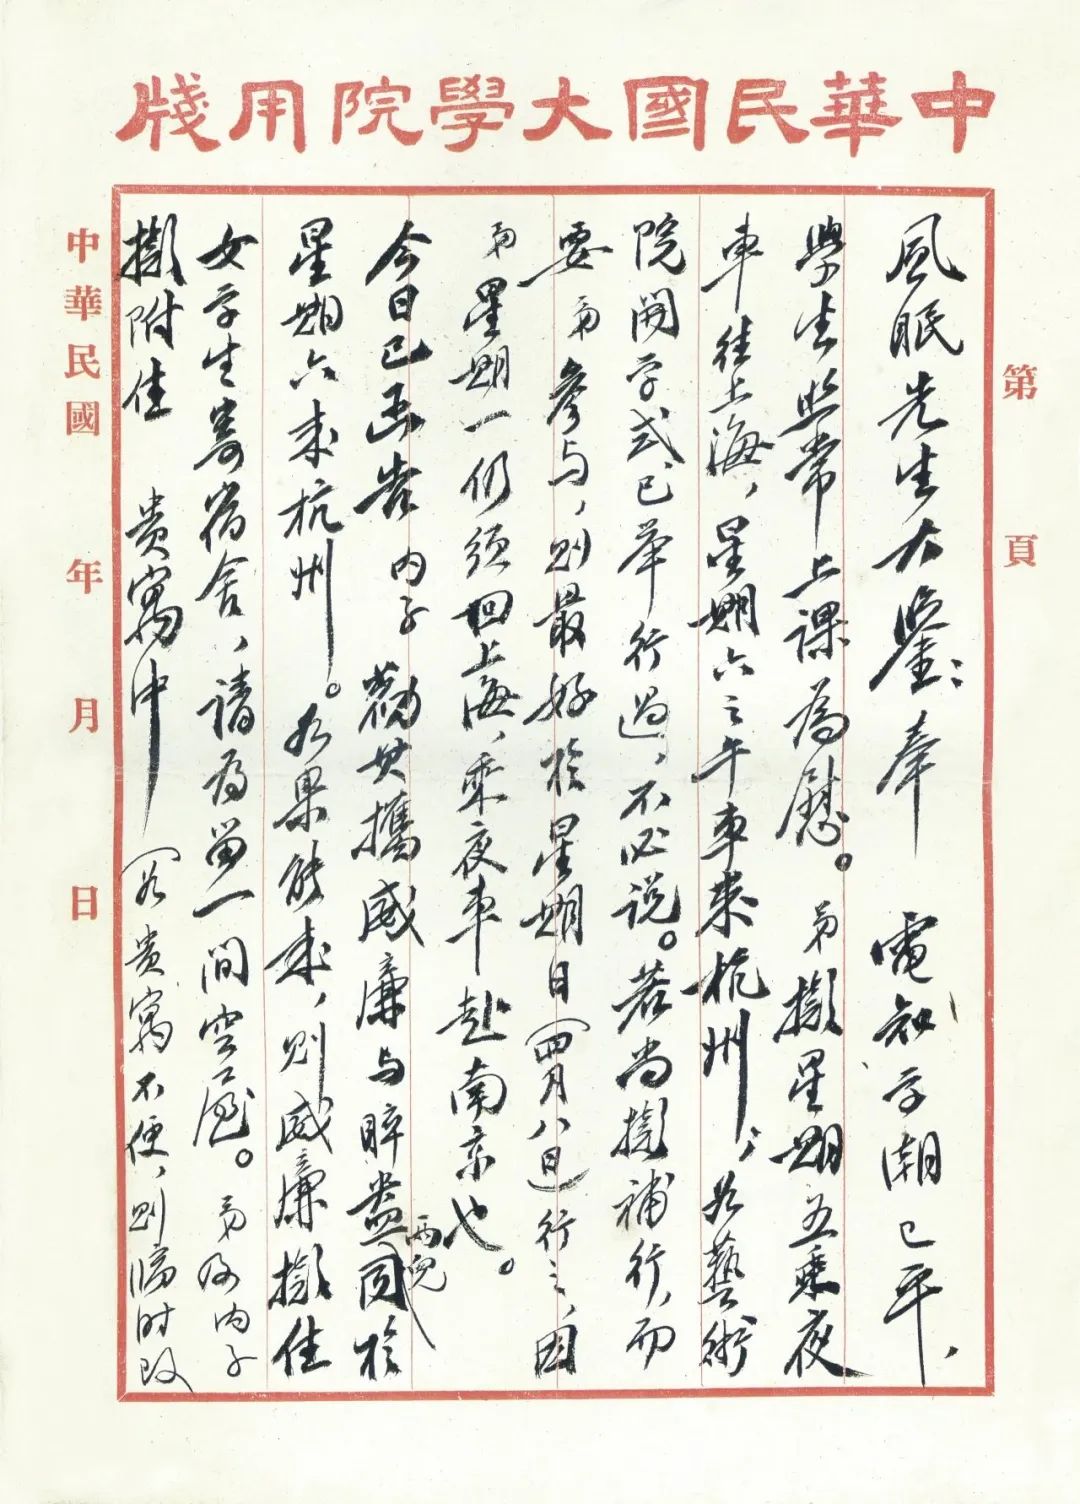 中華民國大學院用牋
第 頁
風眠先生大鑒：奉 電知学潮已平，
學生照常上課為慰。弟擬星期五乘夜
車往上海，星期六之午車来杭州；如藝術
院開学式已举行過，不必说。若尚擬補行，而
要弟參与，则最好於星期日（四月八日）行之，因
弟星期一仍须回上海，乘夜車赴南京也。
今日已函告内子 勸其攜威廉与睟盎两兒同於
星期六来杭州。如果能来，则威廉擬住
女学生寄宿舍，請为留一间空屋。弟及内子
擬附住 贵寓中（若贵寓不便，则临时改
中華民國 年 月 日